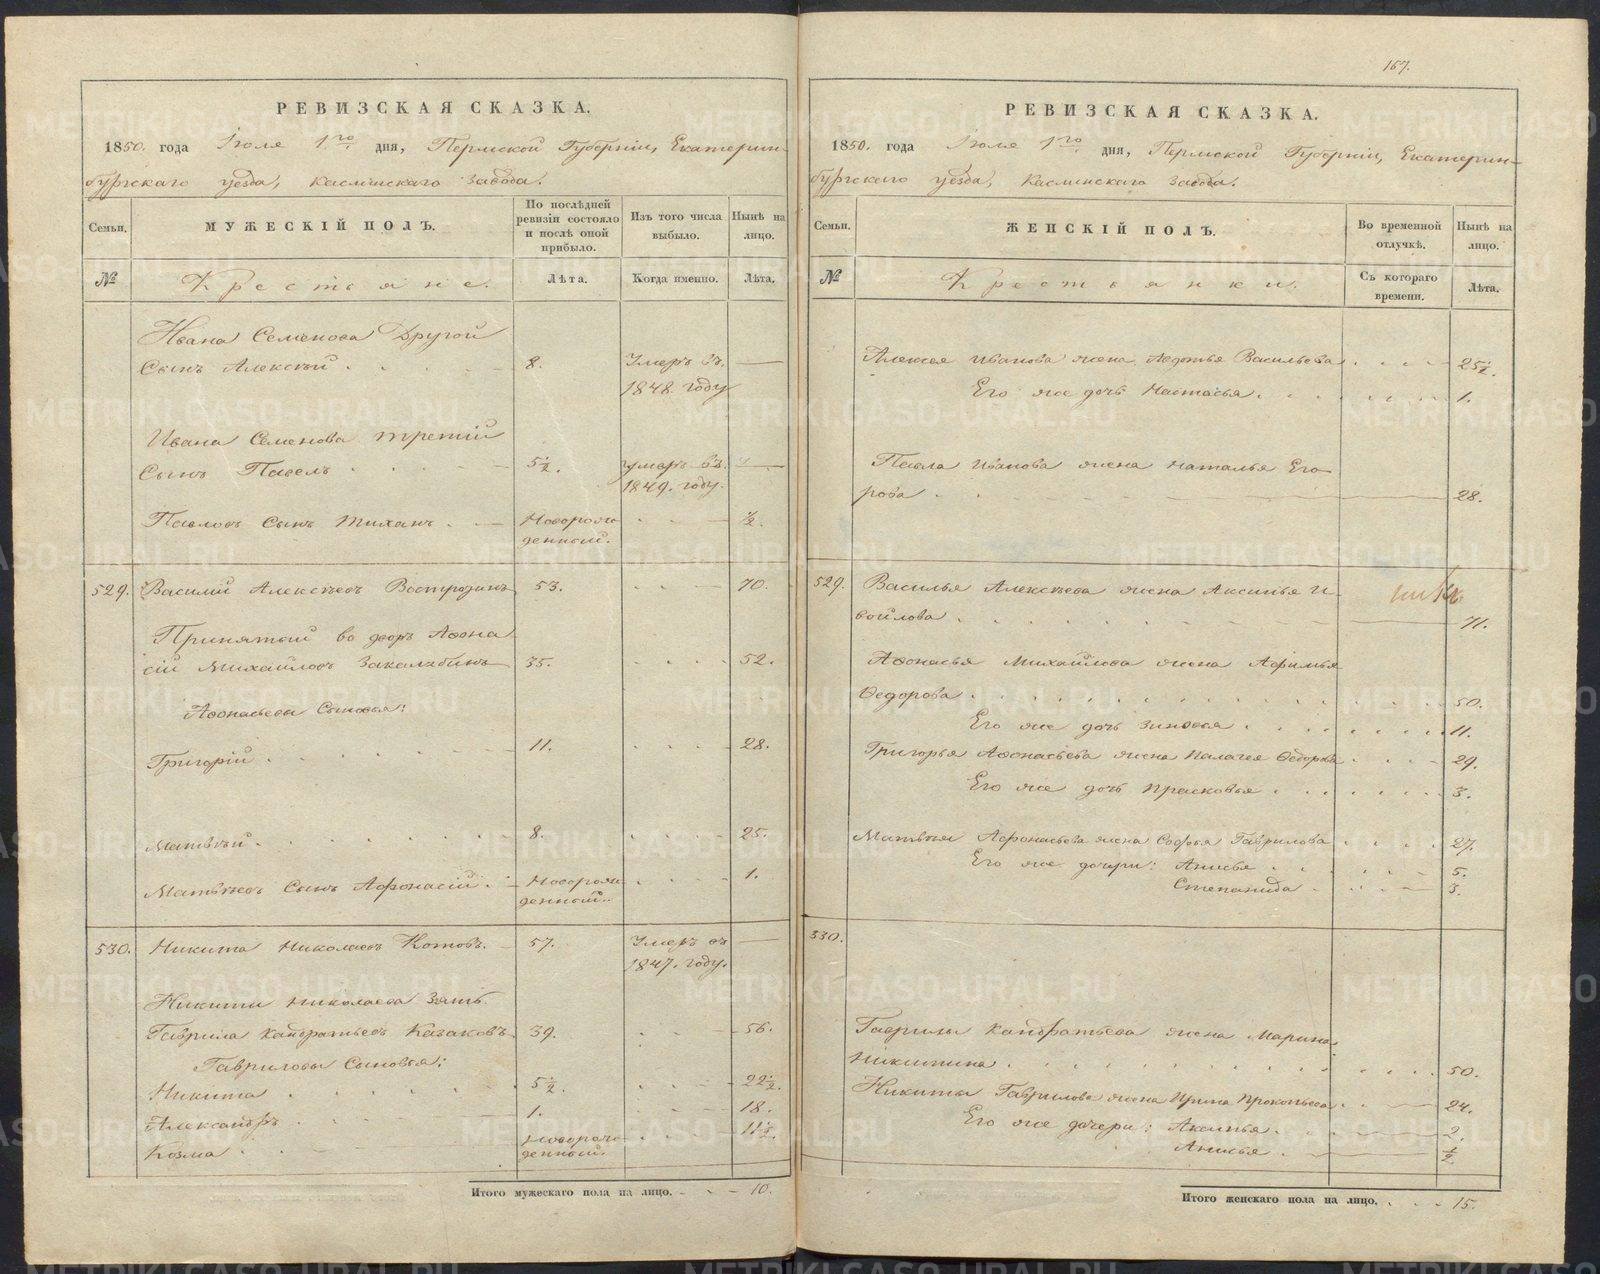 РЕВИЗСКАЯ СКАЗКА.
1850. года Іюля 1го дня, Пермской Губерніи, Екатерин-
бургскаго уезда, Каслинскаго завода.
Семьи. МУЖЕСКІЙ ПОЛЪ. По послѣдней ревизіи состояло и послѣ оной прибыло. Изъ того числа выбыло. Нынѣ на лицо.
№ Крестьяне. Лѣта. Когда именно. Лѣта.
Ивана Семенова Другой
Сынъ Алексѣй 8. Умеръ въ 1848. году —
Ивана Семенова третій
Сынъ Павелъ 5½. умеръ въ 1849. году. —
Павловъ Сынъ Тиханъ Новорожденный. ½.
529. Василій Алексѣевъ Вострозинъ 53. 70.
Принятый во дворъ Афона-
сій Михайловъ Закалябинъ 35. 52.
Афонасьевы Сыновья:
Григорій 11. 28.
Матвѣй 8. 25.
Матвѣевъ Сынъ Афонасій Новорожденный. 1.
530. Никита Николаевъ Котовъ. 57. Умеръ въ 1847. году. —
Никиты Николаева Зять
Гаврила Кандратьевъ Казаковъ 39. 56.
Гавриловы Сыновья:
Никита 5½. 22½.
Александръ 1. 18.
Козма Новорожденный. 11½.
Итого мужескаго пола на лицо. 10.
167.
РЕВИЗСКАЯ СКАЗКА.
1850. года Іюля 1го дня, Пермской Губерніи, Екатерин-
бургскаго уезда, Каслинскаго завода.
Семьи. ЖЕНСКІЙ ПОЛЪ. Во временной отлучкѣ. Нынѣ на лицо.
№ Крестьянки. Съ котораго времени. Лѣта.
Алексея Иванова жена Авдотья Васильева 25½.
Его же дочь Настасья 1.
Павла Иванова жена Наталья Его-
рова 28.
529. Василья Алексѣева жена Аксинья И-
войлова 71.
Афонасья Михайлова жена Афимья
Федорова 50.
Его же дочь Зиновья 11.
Григорья Афонасьева жена Палагея Федорова 29.
Его же дочь Прасковья 3.
Матвея Афонасьева жена Софья Гаврилова 27.
Его же дочери: Анисья 5.
Степанида 3.
330.
Гаврилы Кандратьева жена Марина
Никитина 50.
Никиты Гаврилова жена Ирина Прокопьева 24.
Его же дочери: Аксинья 2.
Анисья ½.
Итого женскаго пола на лицо. 15.
METRIKI.GASO-URAL.RU